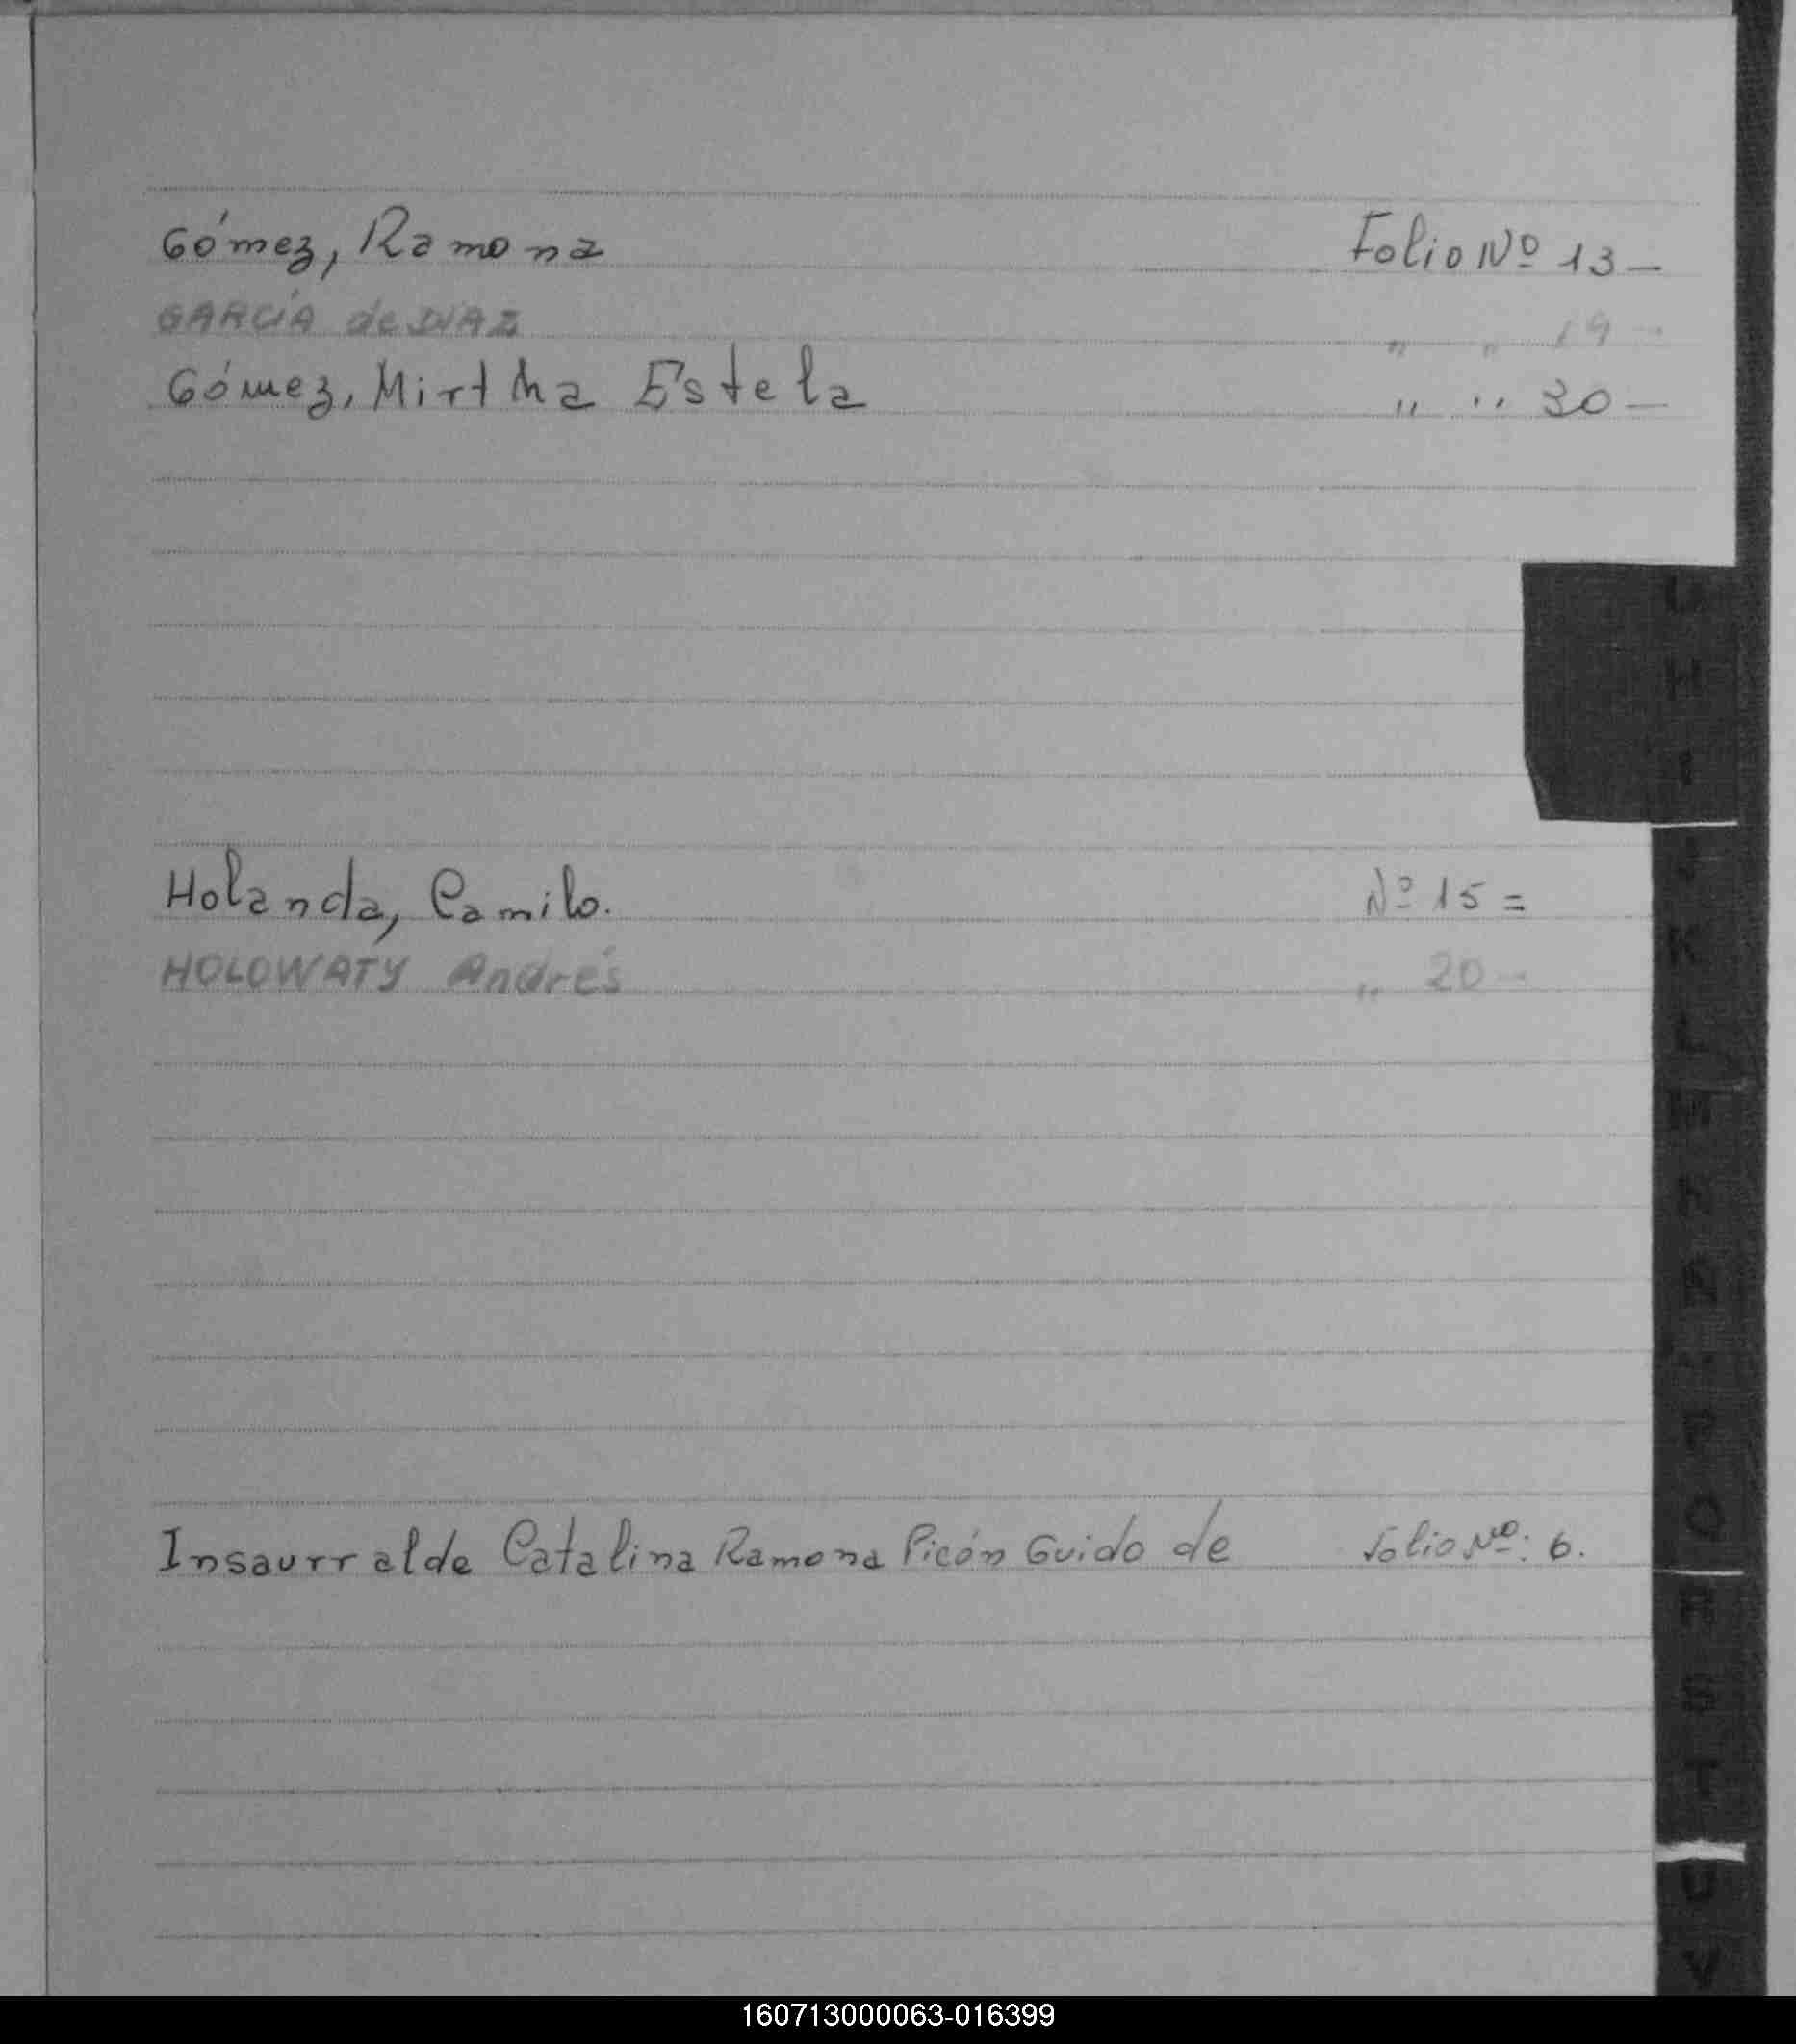 Gómez, Ramona Folio Nº 13 —
GARCÍA de DIAZ " " 19 —
Gómez, Mirtha Estela " " 30 —
Holanda, Camilo. Nº 15 =
HOLOWATY Andrés " 20 —
Insaurralde Catalina Ramona Picón Guido de Folio Nº: 6.
H
K
O
R
S
T
U
V
160713000063-016399